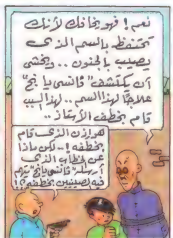 نعم! فهو يخافك لأنك
تحتفظ بالسم الذى
يصيب بالجنون.. ويخشى
أن يكتشف "فانسى يا بخ"
علاجًا لهذا السم.. لهذا السبب
قام بخطف الأستاذ..
هو إذن الذى قام
بخطفه!.. لكن ماذا
عن الخطاب الذى
أرسله "فانسى يا بخ" يتهم
فيه لصينيين بخطفه؟!